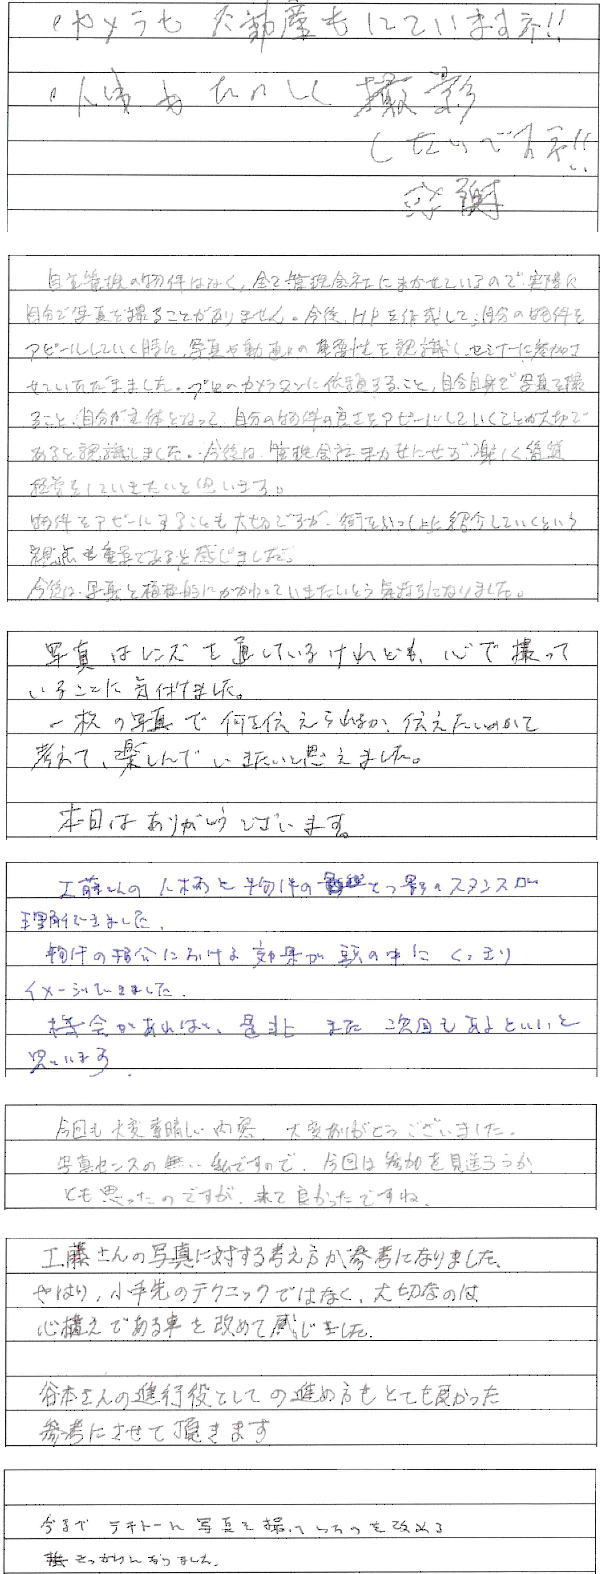 カメラも不動産もにていますネ!!
人生もたのしく撮影
したいですネ!!
感謝
自主管理の物件はなく、全て管理会社にまかせているので実際に
自分で写真を撮ることがありません。今後、HPを作成して、自分の物件を
アピールしていく時に、写真や動画の重要性を認識し、セミナーに参加さ
せていただきました。プロのカメラマンに依頼すること、自分自身で写真を撮
ること、自分が主体となって、自分の物件の良さをアピールしていくことが大切で
あると認識しました。今後は、管理会社まかせにせず楽しく賃貸
経営をしていきたいと思います。
物件をアピールすることも大切ですが、街をいっしょに紹介していくという
視点も重要であると感じました。
今後は、写真と積極的にかかわっていきたいという気持ちになりました。
写真はレンズを通しているけれども、心で撮って
いることに気付けました。
一枚の写真で何を伝えられるか、伝えたいのかを
考えて、楽しんでいきたいと思えました。
本日はありがとうございます。
工藤さんの人柄と物件のとっ影のスタンスが
理解できました。
物件の紹介における効果が頭の中にくっきり
イメージできました。
機会があれば、是非また次回もあるといいと
思います。
今回も大変素晴しい内容、大変ありがとうございました。
写真センスの無い私ですので、今回は参加を見送ろうか
とも思ったのですが、来て良かったですね。
工藤さんの写真に対する考え方が参考になりました。
やはり、小手先のテクニックではなく、大切なのは
心構えである事を改めて感じました。
谷本さんの進行役としての進め方もとても良かった
参考にさせて頂きます
今までテキトーに写真を撮っていたのを改める
きっかけになりました。